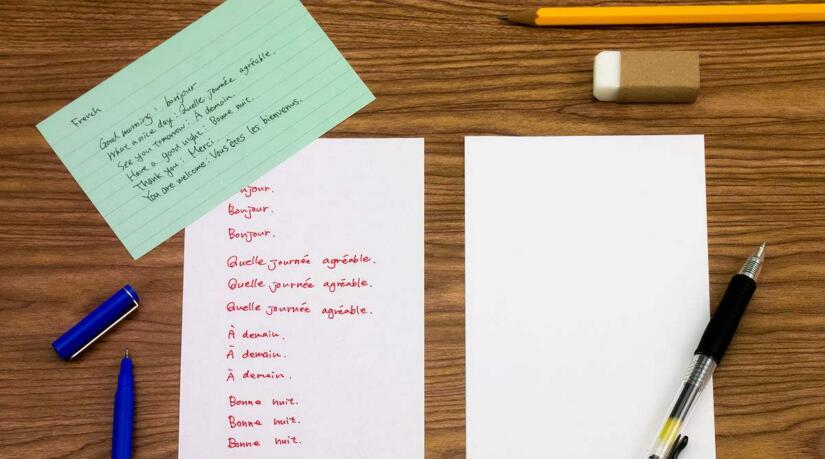 French
Good morning : bonjour
What a nice day : Quelle journée agréable.
See you tomorrow : À demain.
Have a good night : Bonne nuit.
Thank you : Merci
You are welcome : Vous êtes les bienvenus.
njour.
Bonjour.
Bonjour.
Quelle journée agréable.
Quelle journée agréable.
Quelle journée agréable.
À demain.
À demain.
À demain.
Bonne nuit.
Bonne nuit.
Bonne nuit.